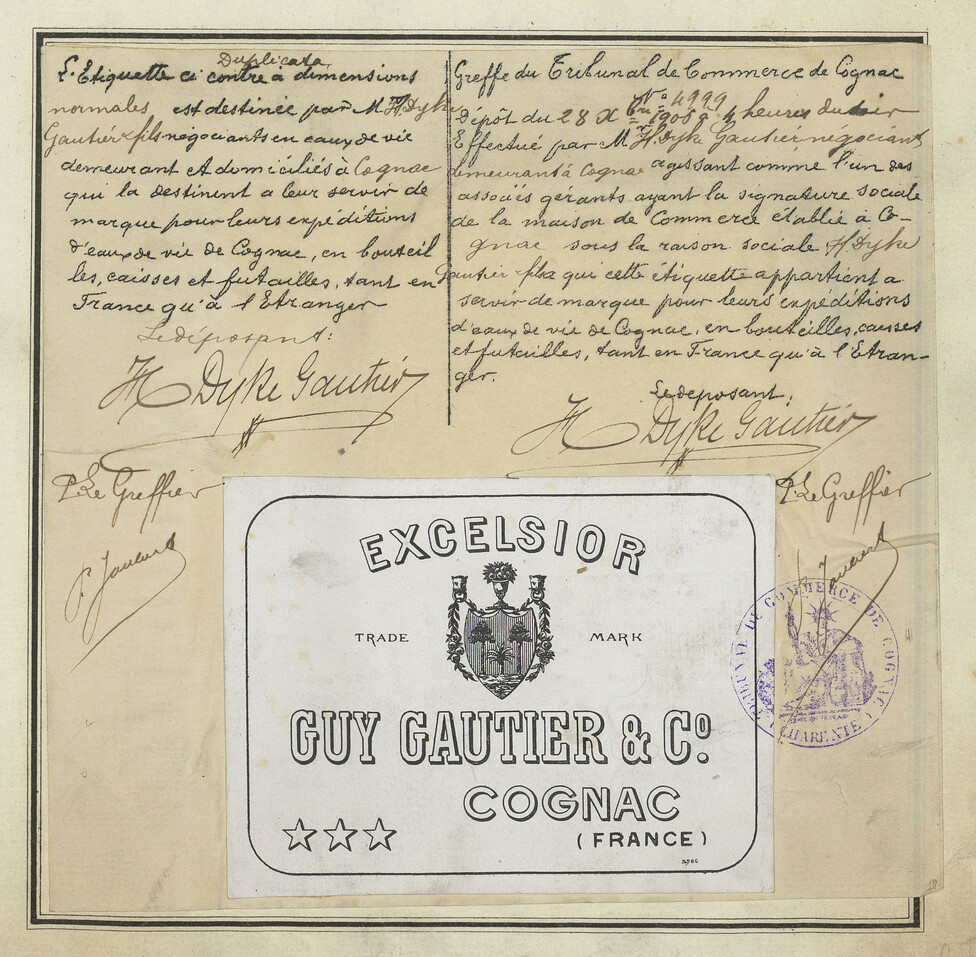 Duplicata
L'Etiquette ci contre à dimensions
normales est destinée par M H Dyke
Gautier & fils négociants en eaux de vie
demeurant et domiciliés à Cognac
qui la destinent a leur servir de
marque pour leurs expéditions
d'eaux de vie de Cognac, en bouteil
les, caisses et futailles, tant en
France qu'à l'Etranger
Le déposant:
H Dyke Gautier
P. Le Greffier
Greffe du Tribunal de Commerce de Cognac
No 4999
Dépôt du 28 Xbre 1905 à 4 heures du soir
Effectué par M H. Dyke Gautier négociant
demeurant à Cognac agissant comme l'un des
associés gérants ayant la signature sociale
de la maison de Commerce etablie à Co-
gnac sous la raison sociale H Dyke
Gautier & fils qui cette étiquette appartient a
servir de marque pour leurs expéditions
d'eaux de vie de Cognac, en bouteilles, caisses
et futailles, tant en France qu'à l'Etran-
ger.
Le deposant:
H Dyke Gautier
P. Le Greffier
EXCELSIOR
TRADE MARK
GUY GAUTIER & Co.
COGNAC
(FRANCE)
TRIBUNAL DE COMMERCE DE COGNAC
(CHARENTE)